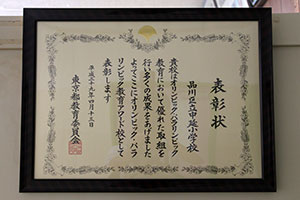 表彰状
品川区立中延小学校
貴校はオリンピック・パラリンピック
教育において優れた取組を
行い多くの成果をあげました
よってここにオリンピック・パラ
リンピック教育アワード校として
表彰します
平成二十九年四月十三日
東京都教育委員会